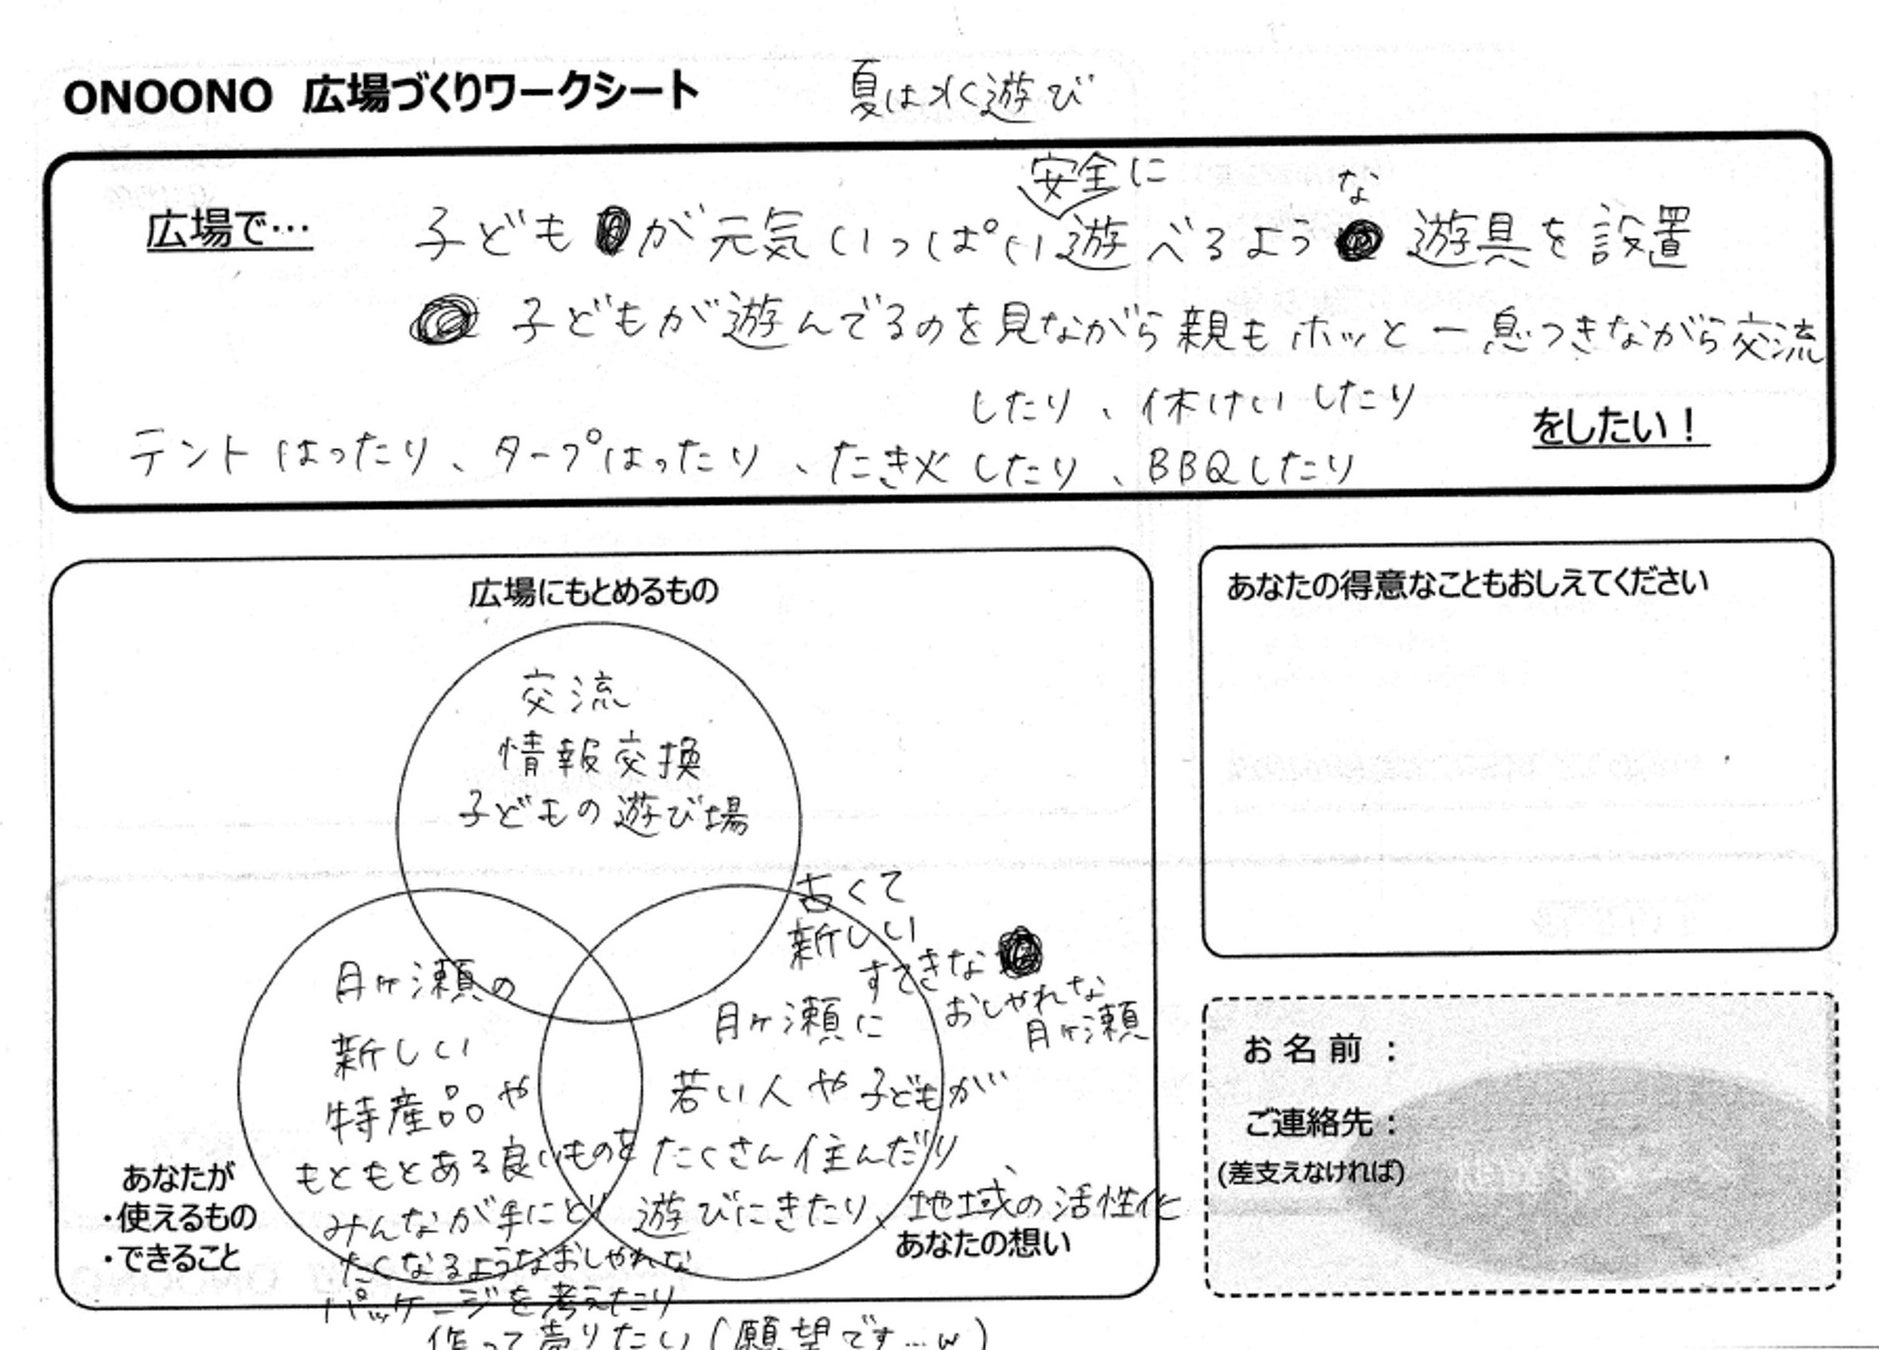 ONOONO 広場づくりワークシート
夏は水遊び
広場で…
安全に
な
子どもが元気いっぱい遊べるよう遊具を設置
子どもが遊んでるのを見ながら親もホッと一息つきながら交流
したり、休けいしたり
をしたい！
テントはったり、タープはったり、たき火したり、BBQしたり
広場にもとめるもの
交流
情報交換
子どもの遊び場
月ヶ瀬の
新しい
特産品や
もともとある良いものを
みんなが手にとり
たくなるようなおしゃれな
パッケージを考えたり
作って売りたい(願望です…w)
あなたが
・使えるもの
・できること
古くて
新しい
すてきな
おしゃれな
月ヶ瀬
月ヶ瀬に
若い人や子どもが
たくさん住んだり
遊びにきたり、地域の活性化
あなたの想い
あなたの得意なこともおしえてください
お名前：
ご連絡先：
(差支えなければ)